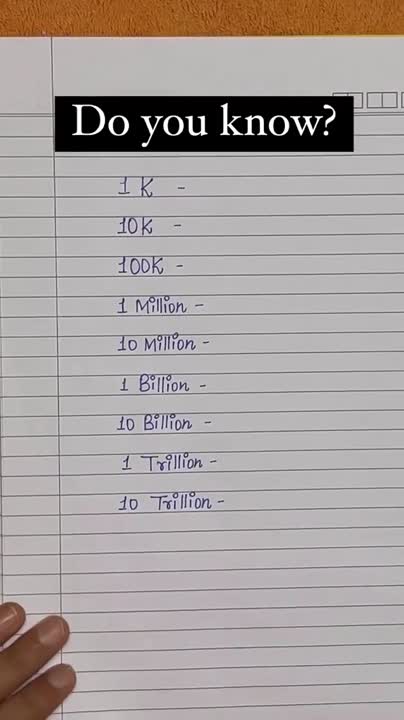 Do you know?
1 K -
10K -
100K -
1 Million -
10 Million -
1 Billion -
10 Billion -
1 Trillion -
10 Trillion -